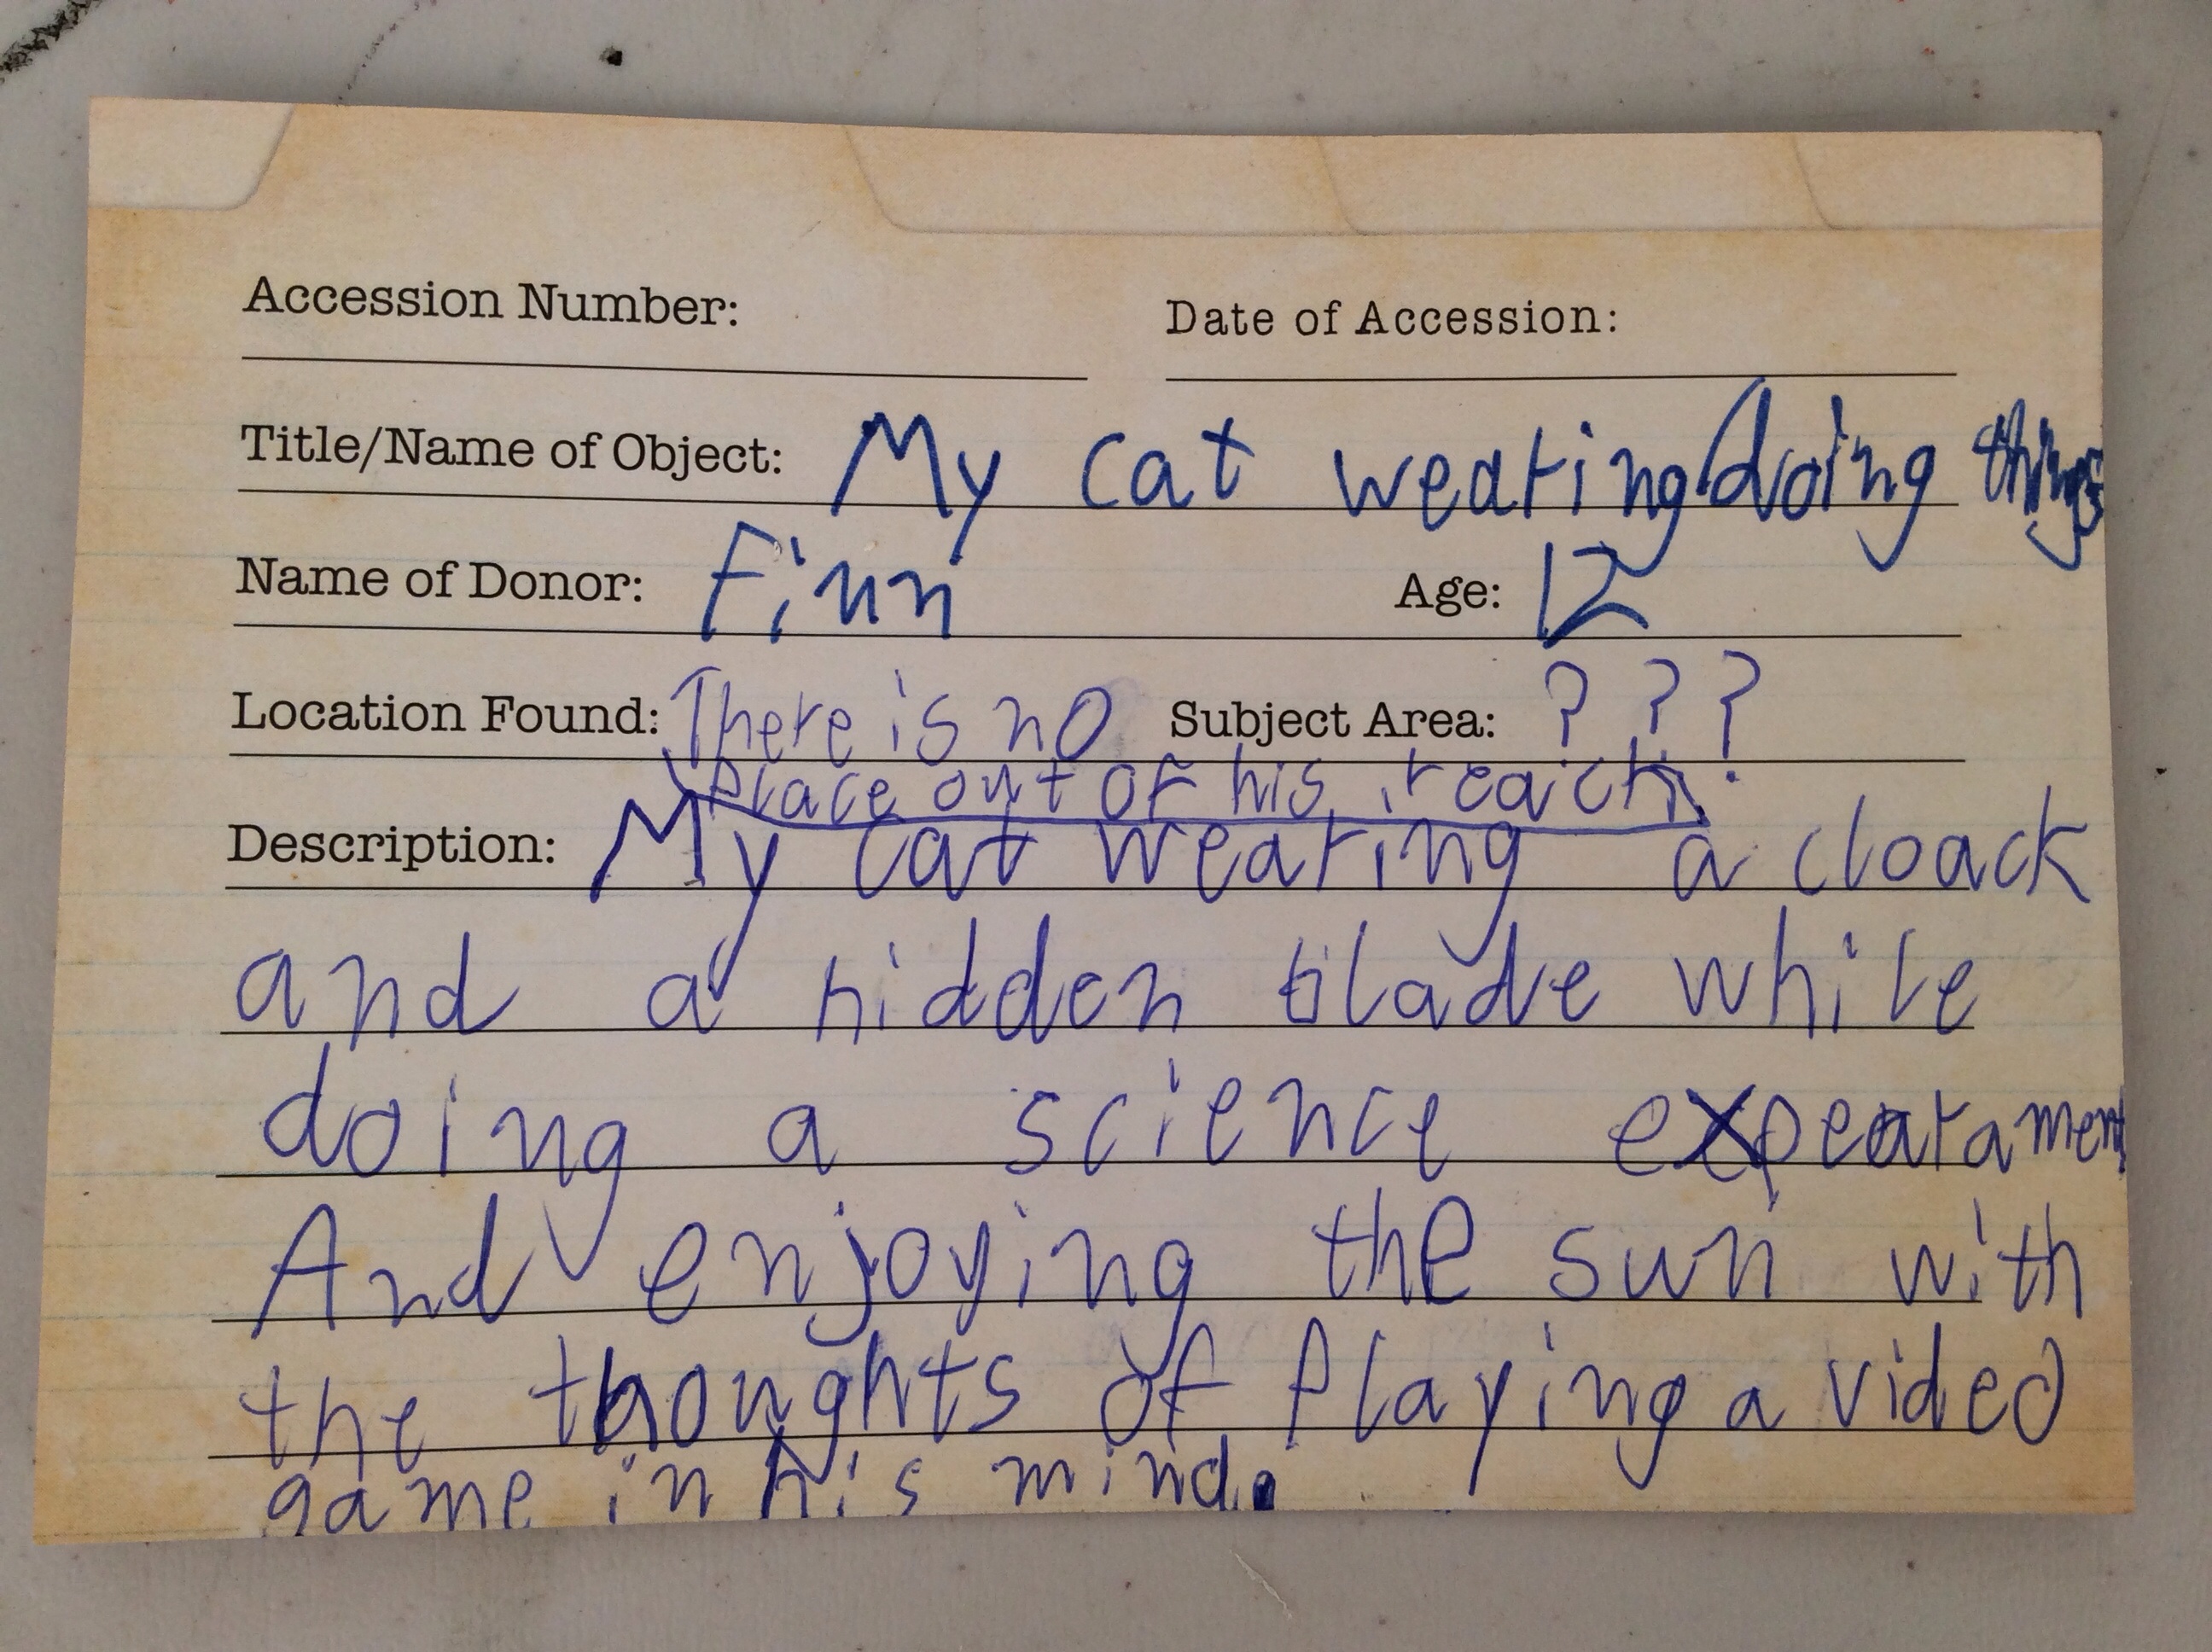 Accession Number: Date of Accession:
Title/Name of Object: My cat wearing/doing things
Name of Donor: Finn Age: 12
Location Found: There is no Subject Area: ? ? ?
place out of his reach
Description: My cat wearing a cloack
and a hidden blade while
doing a science expearament
And enjoying the sun with
the thoughts of Playing a video
game in his mind.